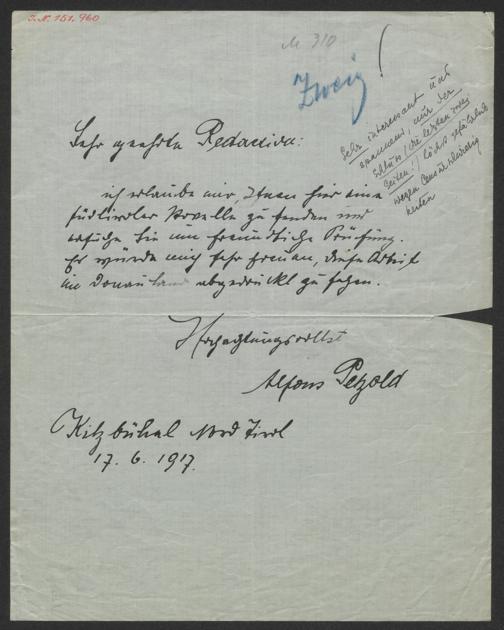 J.N. 151.960
M 310
Zweig
Sehr interessant und
spannend! nur der
Schluss (die letzten zwei
Seiten!) höchst gefährdend
wegen
Sehr geehrte Redaction:
ich erlaube mir, Ihnen hier eine
südtiroler Novelle zu senden und
ersuche Sie um freundliche Prüfung.
Es würde mich sehr freuen, diese Arbeit
im Donauland abgedruckt zu sehen.
Hochachtungsvollst
Alfons Petzold
Kitzbühel Nord Tirol
17. 6. 1917.